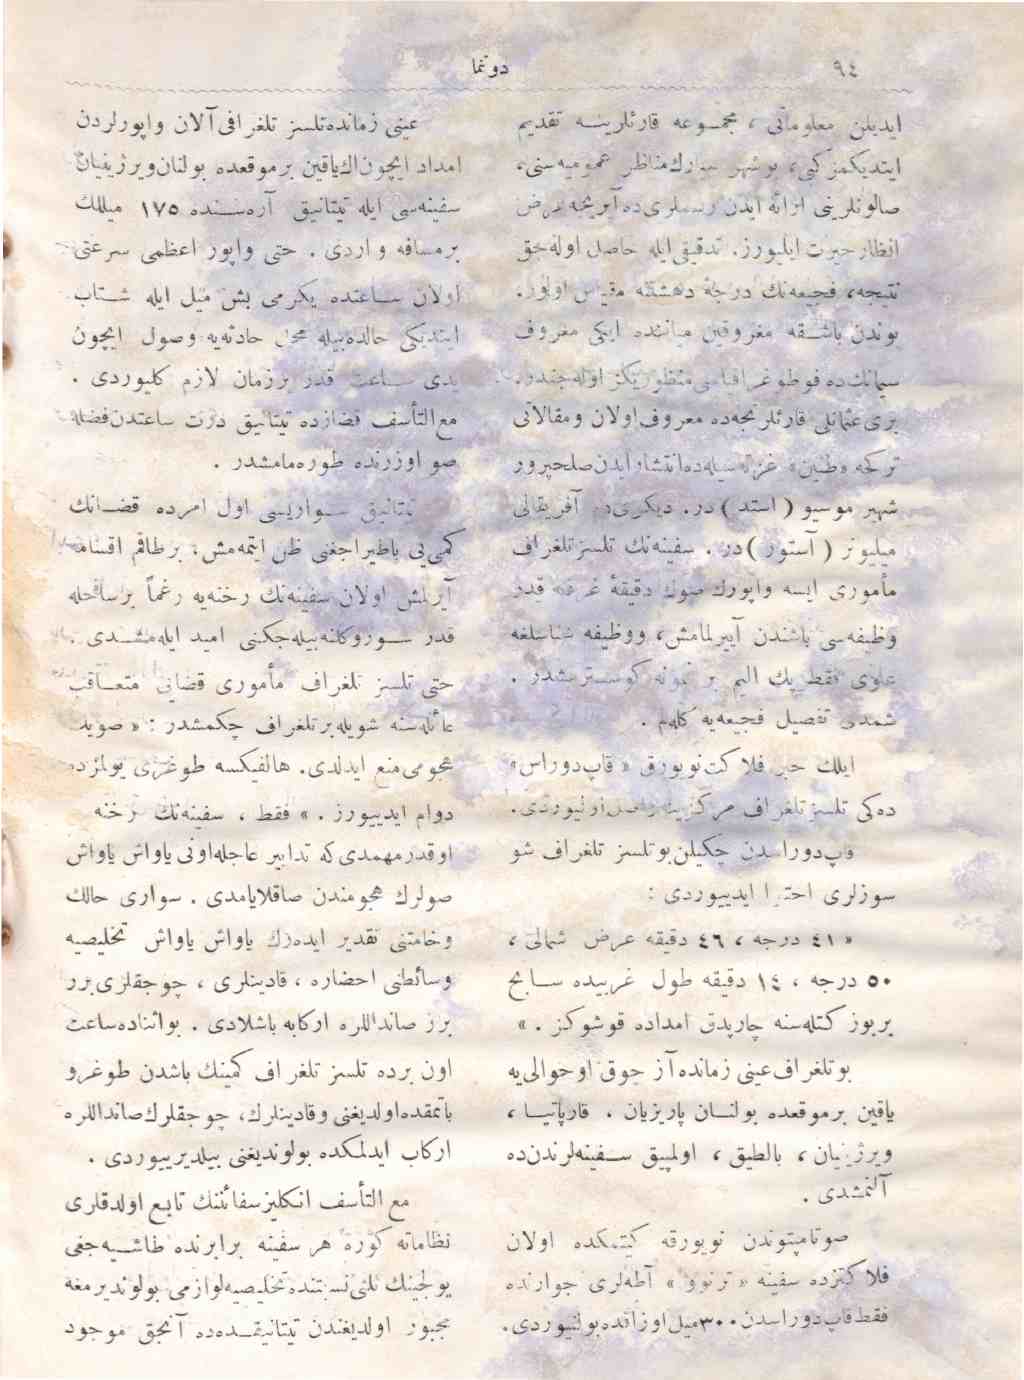 ٩٤
دوتنما
ايديلن معلوماتى ، مجموعه قارئلرينه تقديم
ايتديكمز كبى، بو شهر سوارك مناظر عموميه سنى،
صالونلرينى ارائه ايدن رسملرى ده آيريجه عرض
انظار حيرت ايليورز. تدقيقى ايله حاصل اوله جق
نتيجه، فجيعه نك درجهٔ دهشتنه مقياس اولور.
بوندن باشقه مغروقين مياننده ايكى معروف
سيمانك ده فوطوغرافيلرى منظوريكز اوله جقدر.
برى عثمانلى قارئلرنجه ده معروف اولان ومقالاتى
تركجه «طنين» غزته سيله ده انتشار ايدن صلحپرور
شهير موسيو ( استد ) در. ديكرى ده آفريقالى
ميليونر ( آستور ) در . سفينه نك تلسز تلغراف
مأمورى ايسه واپورك صوك دقيقهٔ غرقنه قدر
وظيفه سى باشندن آيريلمامش، ووظيفه شناسلغه
علوى فقط پك اليم بر نمونه كوسترمشدر .
شمدى تفصيل فجيعه يه كلهلم .
ايلك خبر فلاكت نويورق « قاپ دوراس»
ده كى تلسز تلغراف مركزينه واصل اوليوردى.
قاپ دوراسدن چكيلن بو تلسز تلغراف شو
سوزلرى احتوا ايدييوردى :
« ٤١ درجه ، ٤٦ دقيقه عرض شمالى ،
٥٠ درجه ، ١٤ دقيقه طول غربيده سابح
بر بوز كتله سنه چارپدق امداده قوشوكز . »
بو تلغراف عينى زمانده آز چوق او حوالى يه
ياقين بر موقعده بولنان پاريزيان . قارپاتيا ،
ويرژينيان ، بالطيق ، اولمپيق سفينه لرندن ده
آلنمشدى .
صوتامپتوندن نويورقه كيتمكده اولان
فلاكتزده سفينه « ترنوو » آطه لرى جوارنده
فقط قاپ دوراسدن ٣٠٠ ميل اوزاقده بولنيوردى.
عينى زمانده تلسز تلغرافى آلان واپورلردن
امداد ايچون اك ياقين بر موقعده بولنان ويرژينيان
سفينه سى ايله تيتانيق آره سنده ١٧٥ ميللك
بر مسافه واردى . حتى واپور اعظمى سرعتى
اولان ساعتده يكرمى بش ميل ايله شتاب
ايتديكى حالده بيله محل حادثه يه وصول ايچون
يدى ساعت قدر بر زمان لازم كليوردى .
مع التأسف قضازده تيتانيق درت ساعتدن فضله
صو اوزرنده طوره مامشدر .
تيتانيق سواريسى اول امرده قضانك
كمى يى باطيراجغنى ظن ايتمه مش، بر طاقم اقسامه
آيرلمش اولان سفينه نك رخنه يه رغماً بر ساحله
قدر سوروكلنه بيله جكنى اميد ايله مشدى .
حتى تلسز تلغراف مأمورى قضايى متعاقب
عائله سنه شويله بر تلغراف چكمشدر : « صويك
هجومى منع ايدلدى. هاليفكسه طوغرى يولمزده
دوام ايدييورز . » فقط ، سفينه نك رخنه
او قدر مهمدى كه تدابير عاجله اونى ياواش ياواش
صولرك هجومندن صاقلايامدى . سوارى حالك
وخامتنى تقدير ايده رك ياواش ياواش تخليصيه
وسائطنى احضاره ، قادينلرى ، چوجقلرى برر
برر صانداللره اركابه باشلادى . بو اثناده ساعت
اون برده تلسز تلغراف كمينك باشدن طوغرو
باتمقده اولديغنى وقادينلرك، چوجقلرك صانداللره
اركاب ايدلمكده بولونديغنى بيلديرييوردى .
مع التأسف انكليز سفائننك تابع اولدقلرى
نظاماته كوره هر سفينه برابرنده طاشيه جغى
يولجينك ثلثى نسبتنده تخليصيه لوازمى بولونديرمغه
مجبور اولديغندن تيتانيقده ده آنجق موجود